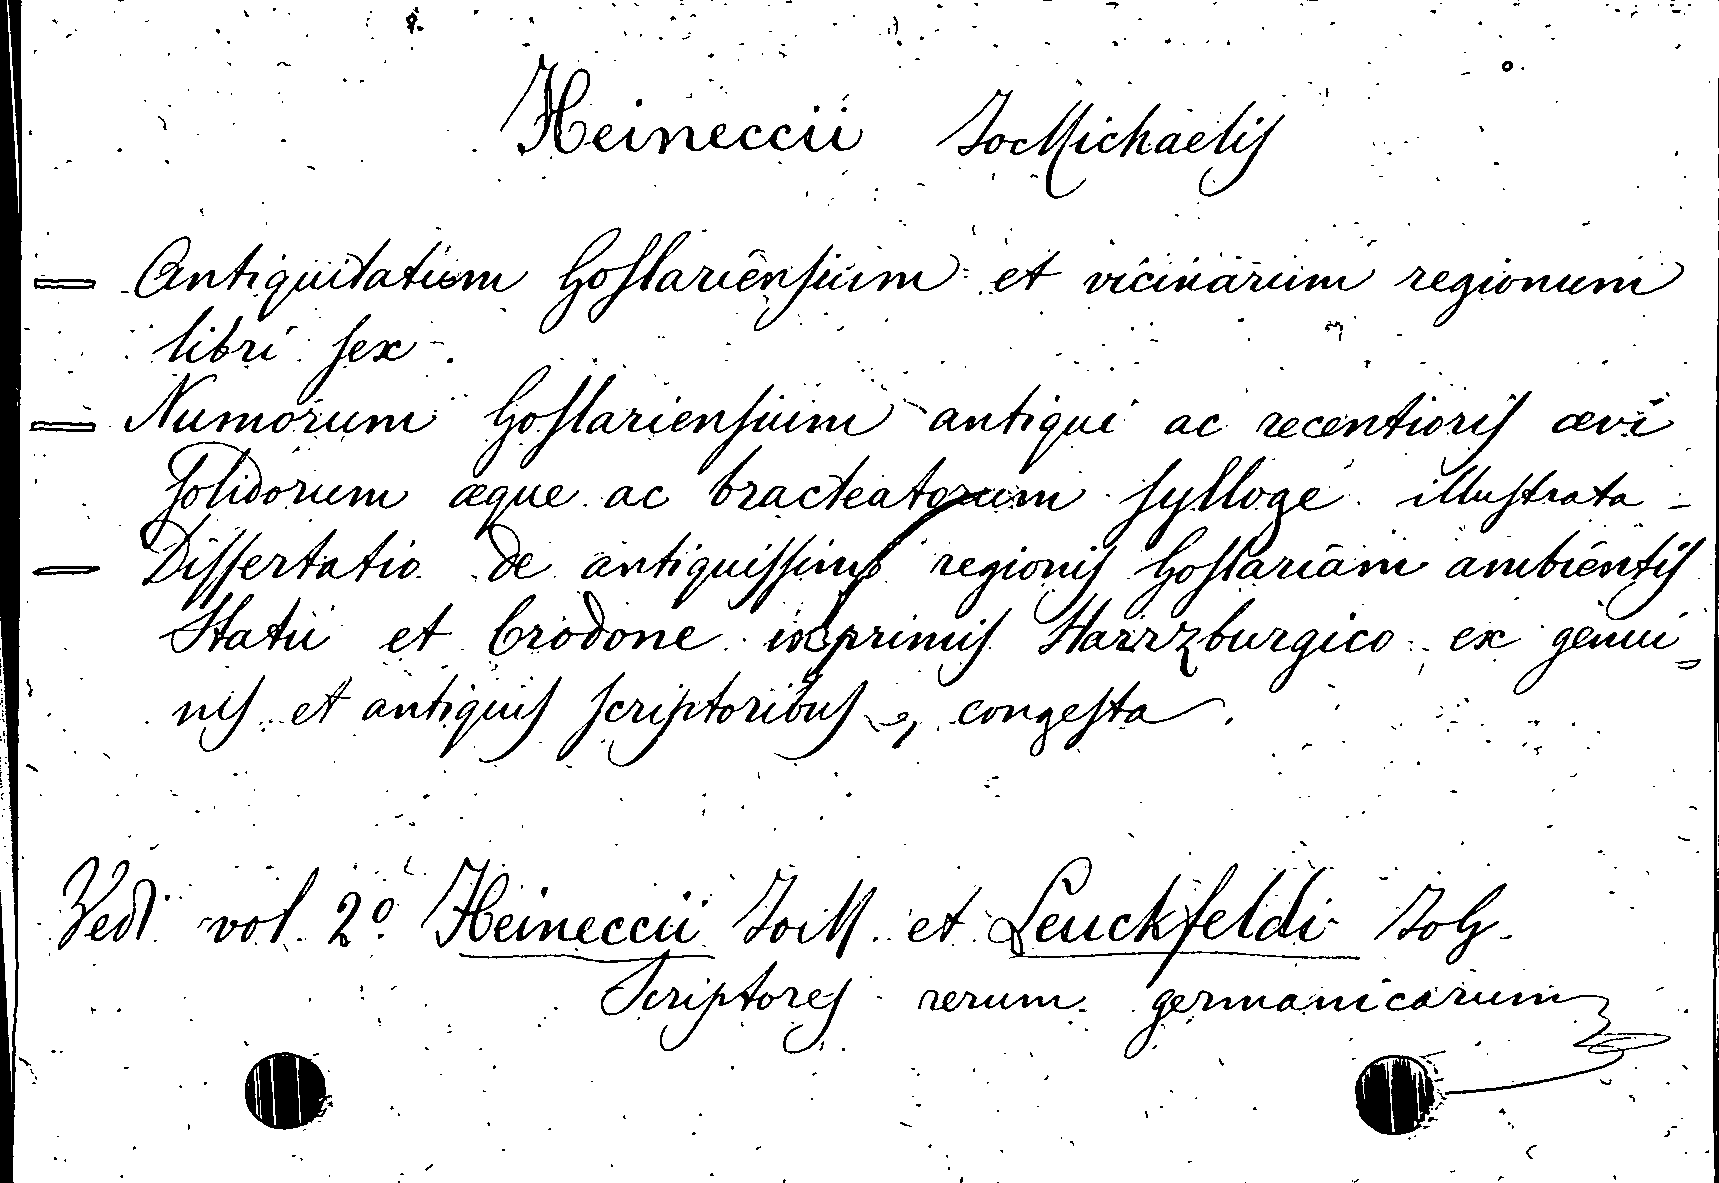 Heineccii Jo Michaelis
= Antiquitatum Goslariensium et vicinarum regionum
libri sex.
= Numorum Goslariensium antiqui ac recentioris ævi
solidorum æque ac bracteatorum sylloge illustrata -
= Dissertatio de antiquissimo regionis Goslariam ambientis
Statu et Crodone inprimis Harrzburgico ex genui=
nis et antiquis scriptoribus, congesta.
Vedi vol. 2º Heineccii Jo M. et Leuckfeldi Jo G.
Scriptores rerum germanicarum